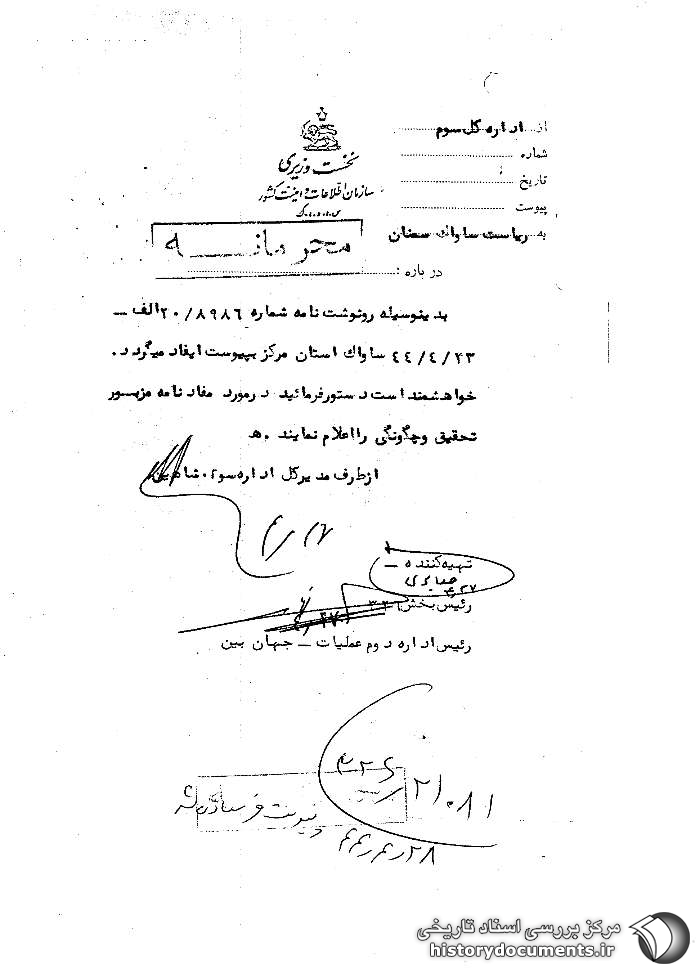 نخست وزیری
سازمان اطلاعات و امنیت کشور
س.ا.و.ا.ک
از اداره کل سوم
شماره
تاریخ
پیوست
به ریاست ساواک سمنان
محرمانه
درباره :
بدینوسیله رونوشت نامه شماره ۲۰/۸۹۸۶ الف –
۴۴/۴/۲۳ ساواک استان مرکز بپیوست ایفاد میگردد.
خواهشمند است دستور فرمائید در مورد مفاد نامه مزبور
تحقیق و چگونگی را اعلام نمایند . ه
از طرف مدیر کل اداره سوم.
تهیه کننده –
صابری
۴/۲۷
رئیس بخش
رئیس اداره دوم عملیات – جهان بین
۲۱۰۸۱
۴۴/۴/۲۸
مرکز بررسی اسناد تاریخی
historydocuments.ir